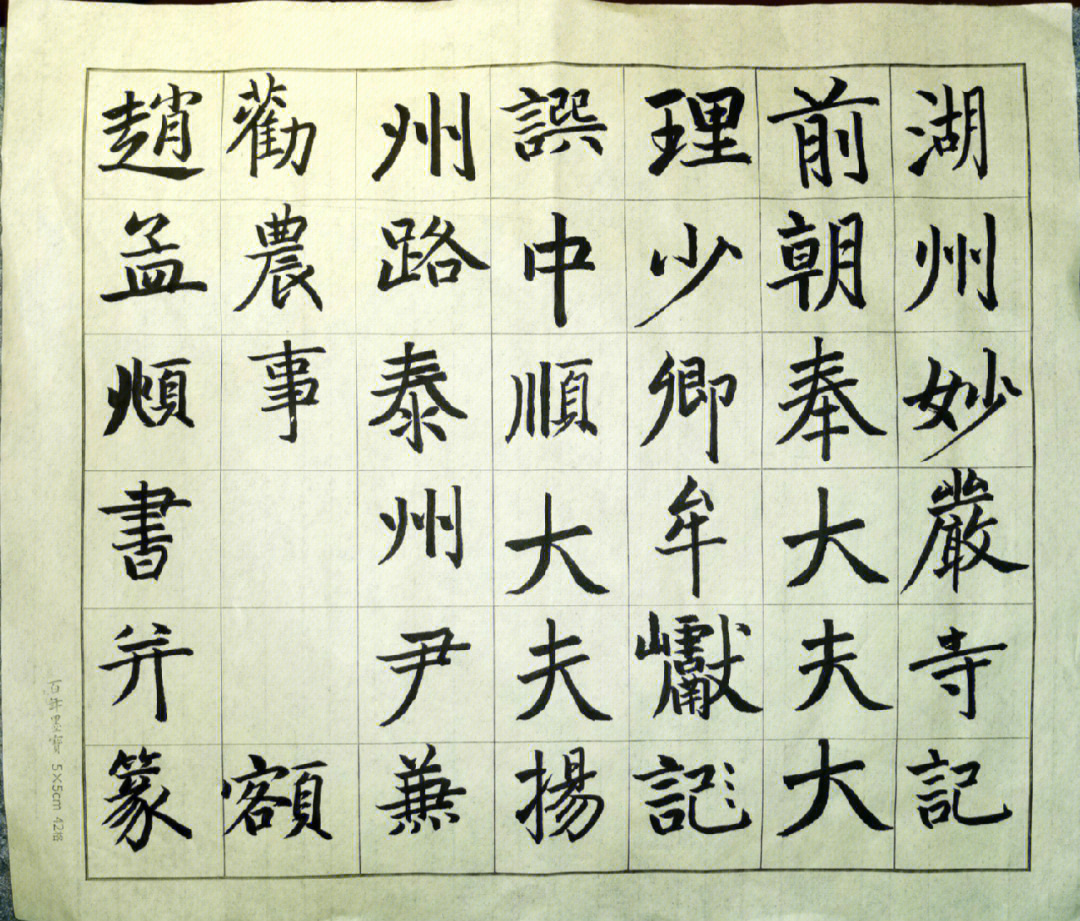 湖州妙嚴寺記
前朝奉大夫大
理少卿牟巘記
譔中順大夫揚
州路泰州尹兼
勸農事 額
趙孟頫書并篆
5×5cm 42格